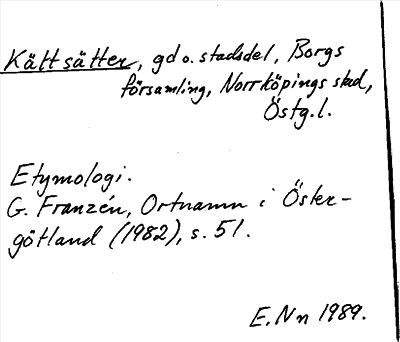 Kättsätter, gd o. stadsdel, Borgs
församling, Norrköpings stad,
Östg.l.
Etymologi.
G. Franzén, Ortnamn i Öster-
götland (1982), s. 51.
E. Nn 1989.